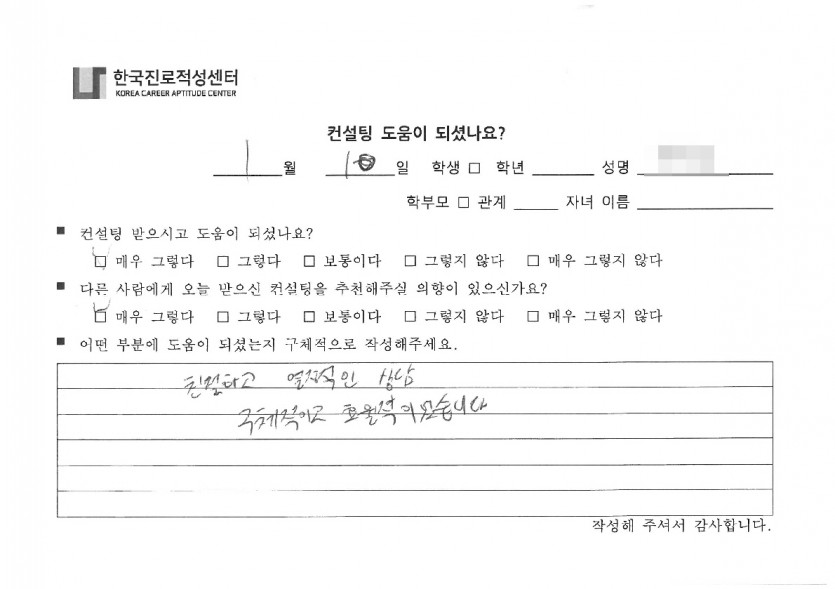 한국진로적성센터
KOREA CAREER APTITUDE CENTER
컨설팅 도움이 되셨나요?
1 월 10 일 학생 □ 학년 성명
학부모 □ 관계 자녀 이름
■ 컨설팅 받으시고 도움이 되셨나요?
□ 매우 그렇다 □ 그렇다 □ 보통이다 □ 그렇지 않다 □ 매우 그렇지 않다
■ 다른 사람에게 오늘 받으신 컨설팅을 추천해주실 의향이 있으신가요?
□ 매우 그렇다 □ 그렇다 □ 보통이다 □ 그렇지 않다 □ 매우 그렇지 않다
■ 어떤 부분에 도움이 되셨는지 구체적으로 작성해주세요.
친절하고 열정적인 상담
구체적이고 효율적이었습니다
작성해 주셔서 감사합니다.